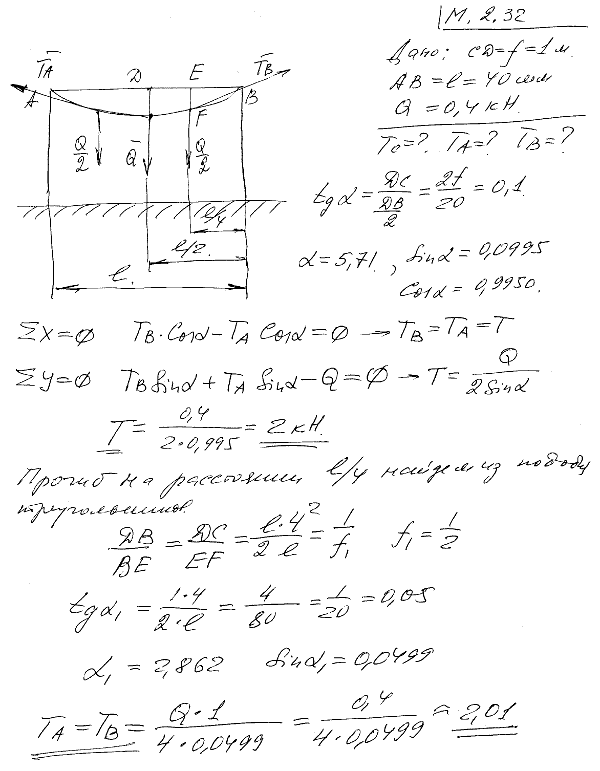 М. 2.32
Дано: CD=f=1м.
AB=l=40мм
Q=0,4кН.
T₀=? T_A=? T_B=?
T̄_A D E T̄_B
A B
F
Q/2 Q̄ Q/2
l/4
l/2.
l.
tgα = DC/(DB/2) = 2f/20 = 0,1.
α=5,71, Sinα=0,0995
Cosα=0,9950.
ΣX=0 T_B·Cosα−T_A Cosα=0 → T_B=T_A=T
ΣY=0 T_B Sinα+T_A Sinα−Q=0 → T= Q/(2Sinα)
T= 0,4/(2·0,995) = 2кН.
Прогиб на расстоянии l/4 найдем из
треугольников
DB/BE = DC/EF = l·4²/(2l) = 1/f₁ f₁=1/2
tgα₁ = 1·4/(2·l) = 4/80 = 1/20 = 0,05
α₁ = 2,862 Sinα₁=0,0499
T_A=T_B= Q·1/(4·0,0499) = 0,4/(4·0,0499) = 2,01